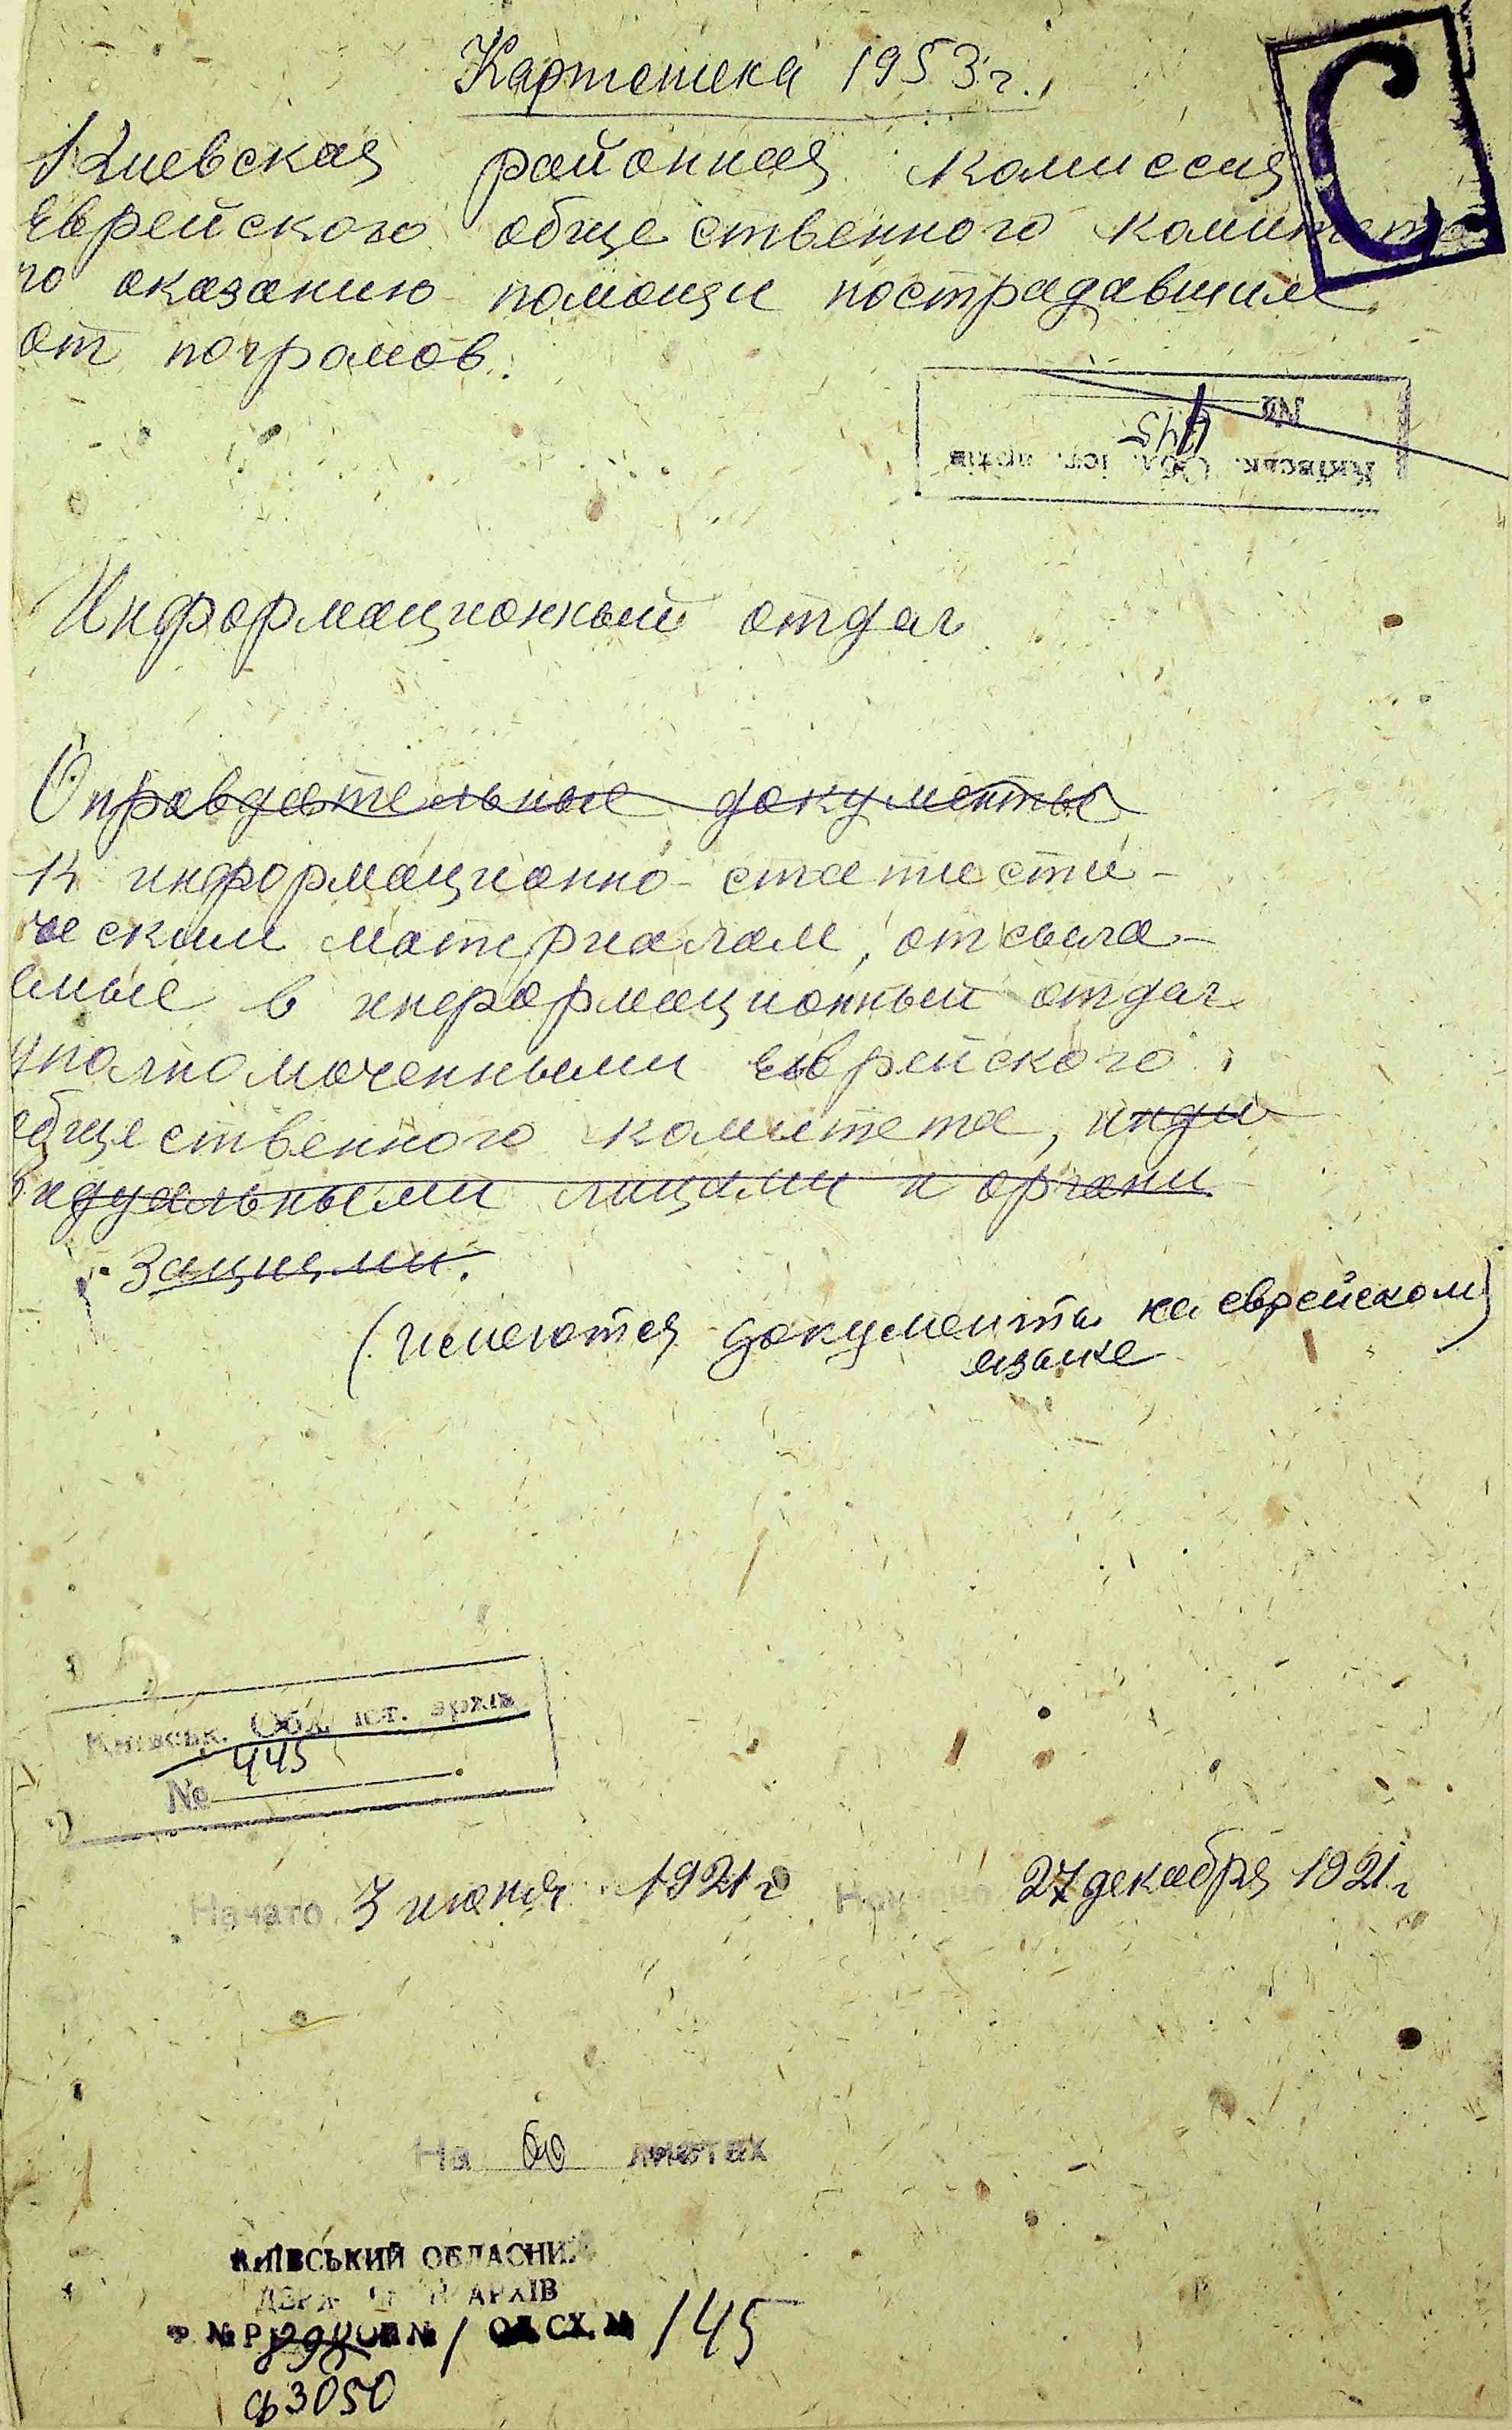 Картотека 1953 г.
С
Киевская районная комиссия
Еврейского общественного комитета
по оказанию помощи пострадавшим
от погромов.
№ 445
Київськ. Обл. іст. архів
Информационный отдел
Оправдательные документы
к информационно-статисти-
ческим материалам, отсыла-
емые в информационный отдел
уполномоченными еврейского
общественного комитета, инди
видуальными лицами и органи
зациями.
(имеются документы на еврейском)
языке
Київськ. Обл. іст. архів
445
№
Начато 3 июня 1921 г 27 декабря 1921 г
На 60 листах
КИЇВСЬКИЙ ОБЛАСНИЙ
АРХІВ
№ Р ОП № 1 ОД. СХ. № 145
ф 3050